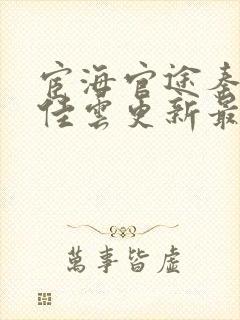 宦海官途秦
佳雲更新最
萬事皆虛